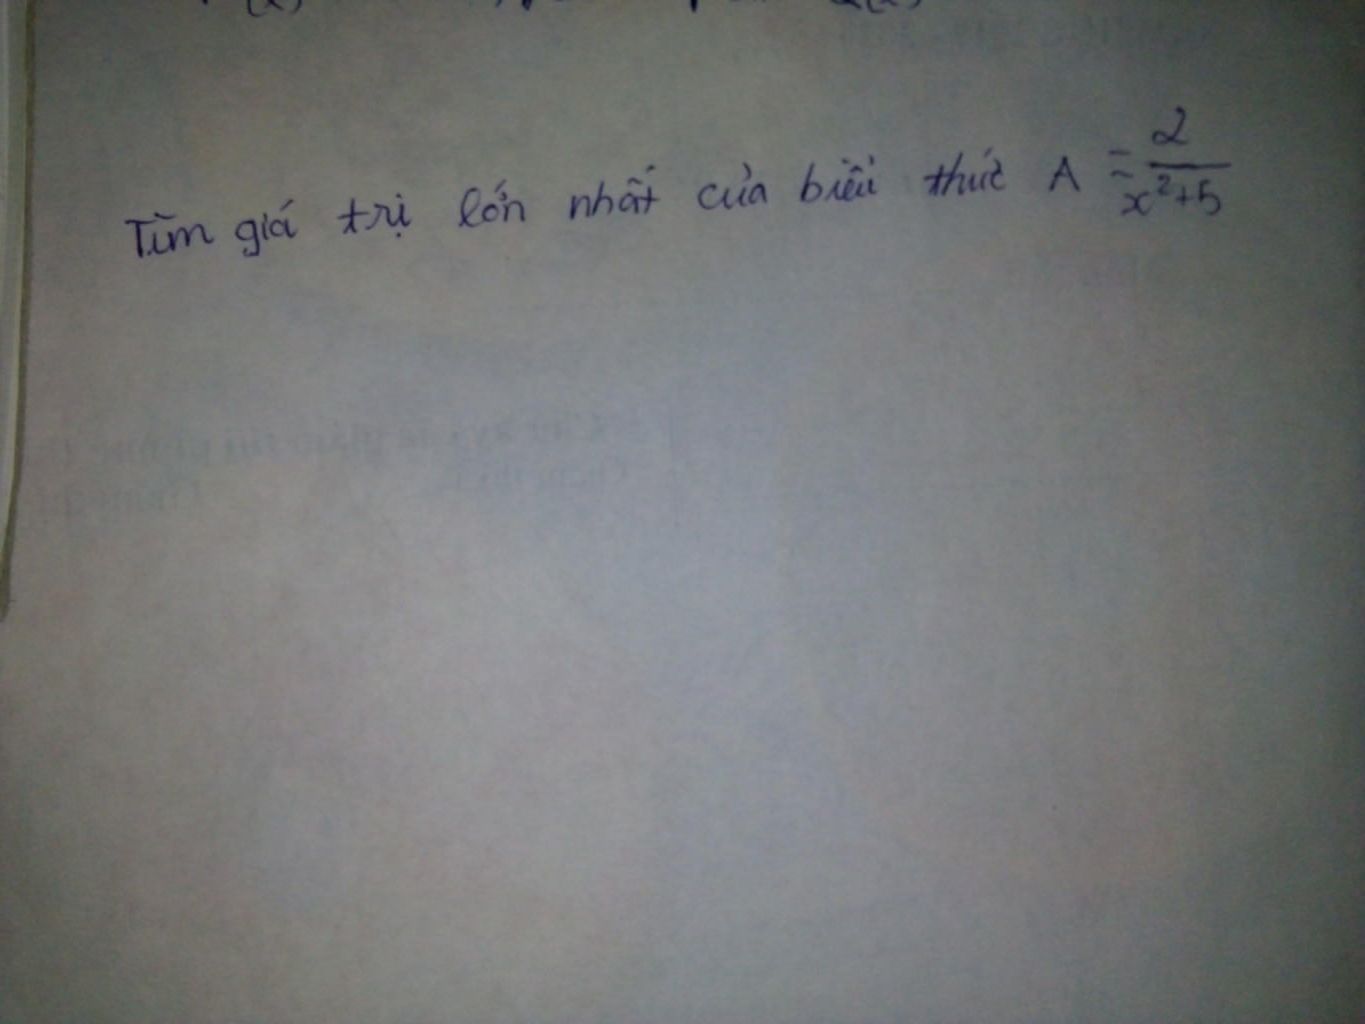 Tìm giá trị lớn nhất của biểu thức A = 2/(x²+5)